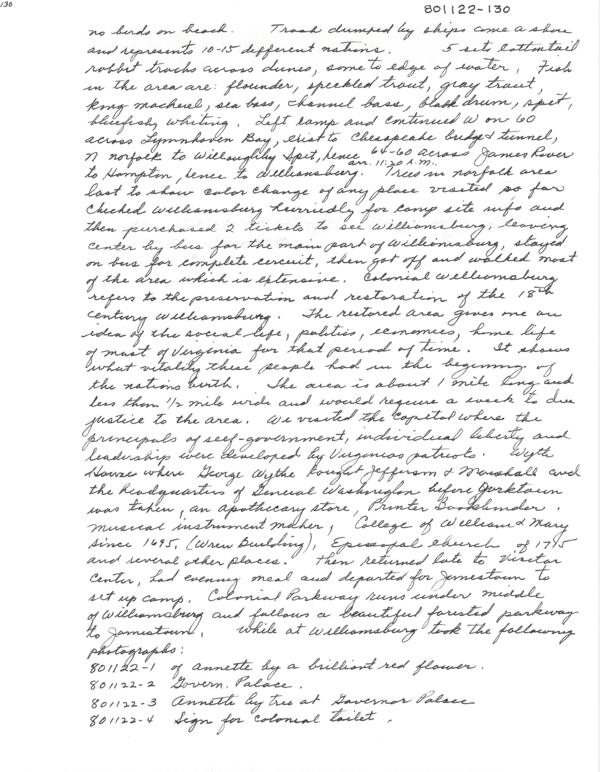 130
801122-130
no birds on beach. Trash dumped by ships come a shore
and represents 10-15 different nations. 5 sets cottontail
rabbit tracks across dunes, some to edge of water. Fish
in the area are: flounder, speckled trout, gray trout,
king mackerel, sea bass, channel bass, black drum, spot,
bluefish, whiting. Left camp and continued W on 60
across Lynnhaven Bay, exist to Chesapeake bridge & tunnel,
N norfolk to Willoughby Spit, hence 64-60 across James River
arr. 11:20 A.M.
to Hampton, hence to Williamsburg. Trees in norfolk area
last to show color change of any place visited so far
Checked Williamsburg hurriedly for camp site info and
then purchased 2 tickets to see Williamsburg, leaving
center by bus for the main part of Williamsburg, stayed
on bus for complete circuit, then got off and walked most
of the area which is extensive. Colonial Williamsburg
refers to the preservation and restoration of the 18th
century Williamsburg. The restored area gives one an
idea of the social life, politics, economics, home life
of most of Virginia for that period of time. It shows
what vitality these people had in the beginning of
the nations birth. The area is about 1 mile long and
less than 1/2 mile wide and would require a week to due
justice to the area. We visited the Capitol where the
principals of self-government, individual liberty and
leadership were developed by Virginias patriots. Wyth
House where George Wythe taught Jefferson & Marshall and
the headquarters of General Washington before Yorktown
was taken, an apothecary store, Printer Bookbinder.
musical instrument maker, College of William & Mary
since 1695, (Wren Building), Episcopal church of 1715
and several other places. Then returned late to Visitor
Center, had evening meal and departed for Jamestown to
set up camp. Colonial Parkway runs under middle
of Williamsburg and follows a beautiful forested parkway
to Jamestown. While at Williamsburg took the following
photographs:
801122-1 of Annette by a brilliant red flower.
801122-2 Govern. Palace.
801122-3 Annette by tree at Governor Palace
801122-4 Sign for colonial toilet.